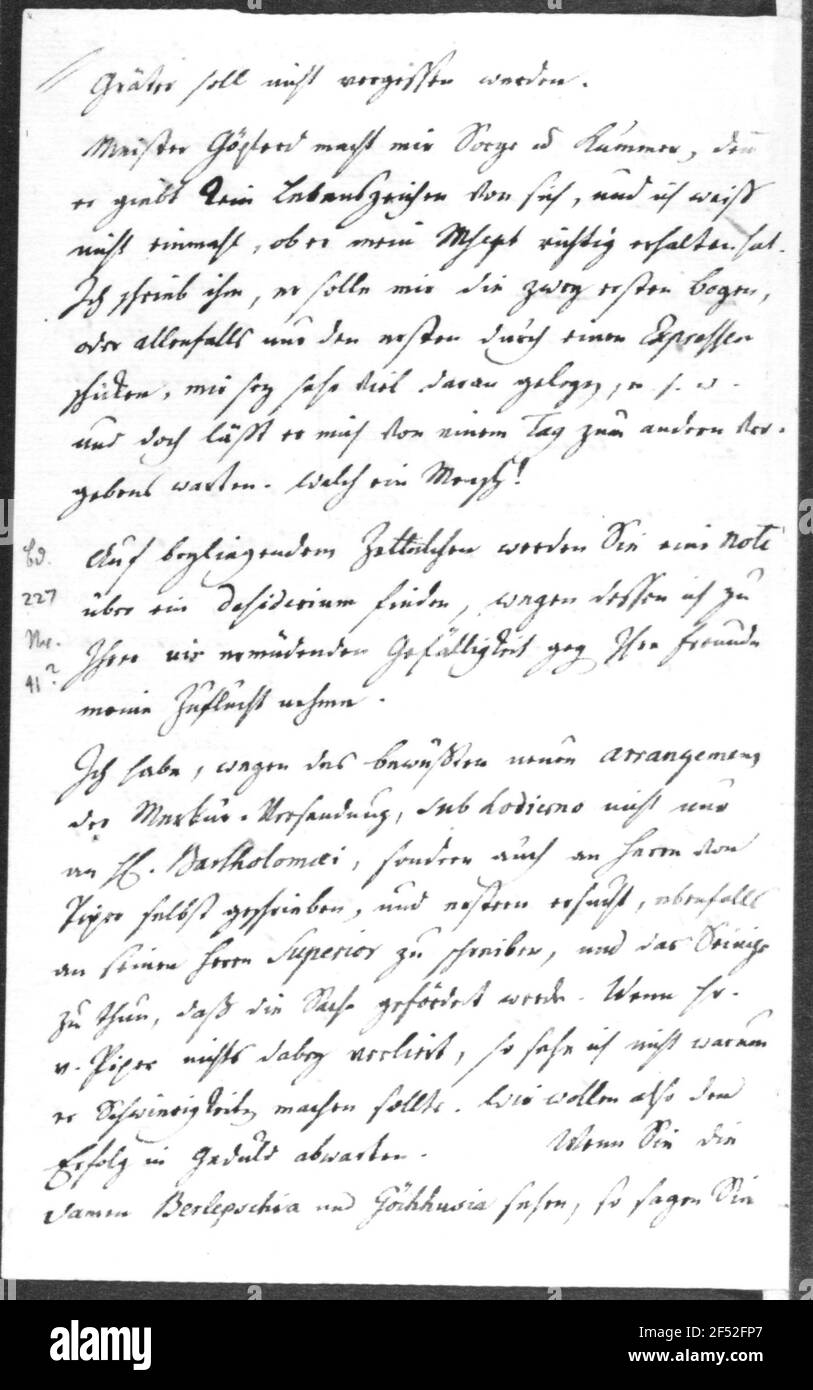 Gräter soll nicht vergessen werden.
Meister Göpferd macht mir Sorge u Kummer, denn
er giebt kein Lebenszeichen von sich, und ich weiss
nicht einmahl, ob er mein Mscpt richtig erhalten hat.
Ich schrieb ihm, er solle mir die zwey ersten Bogen,
oder allenfalls nur den ersten durch einen Expressen
schicken, mir sey sehr viel daran gelegen, u. s. w.
und doch läßt er mich von einem Tag zum andern ver-
gebens warten. Welch ein Mensch!
Bd.
227
Nr.
41?
Auf beyliegendem Zettelchen werden Sie eine Note
über ein Desiderium finden, wegen dessen ich zu
Ihrer nie ermüdenden Gefälligkeit geg Ihre Freunde
meine Zuflucht nehme.
Ich habe, wegen des bewußten neuen arrangemens
der Merkur-Versendung, sub hodierno nicht nur
an H. Bartholomäi, sondern auch an Herrn von
Piper selbst geschrieben, und erstern ersucht, ebenfalls
an seinen Herrn Superior zu schreiben, und das Seinige
zu thun, daß die Sache gefördert werde. Wenn Hr.
v. Piper nichts dabey verliert, so sehe ich nicht warum
er Schwierigkeiten machen sollte. Wir wollen also den
Erfolg in Geduld abwarten. Wenn Sie die
Damen Berlepschia und Göchhusia sehen, so sagen Sie
alamy
Image ID: 2F52FP7
www.alamy.com